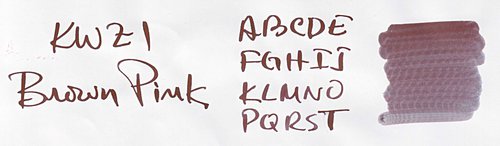 KWZI
Brown Pink
ABCDE
FGHIJ
KLMNO
PQRST